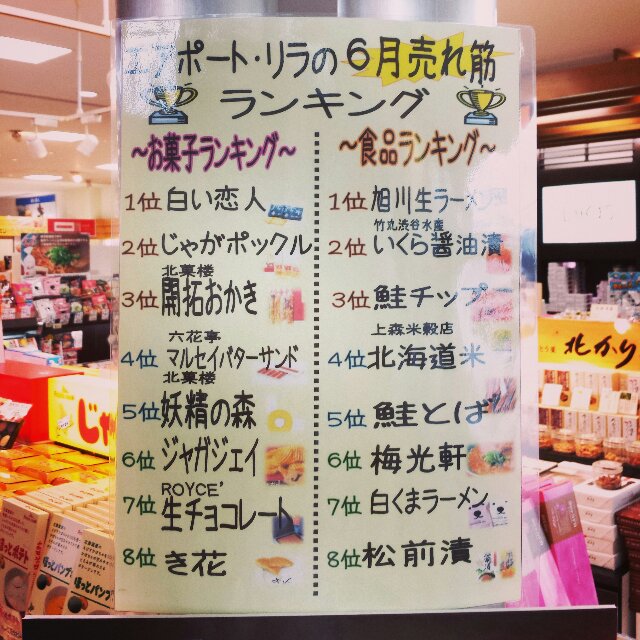 エアポート・リラの6月売れ筋
ランキング
～お菓子ランキング～
1位 白い恋人
2位 じゃがポックル
北菓楼
3位 開拓おかき
六花亭
4位 マルセイバターサンド
北菓楼
5位 妖精の森
6位 ジャガジェイ
ROYCE'
7位 生チョコレート
8位 き花
～食品ランキング～
1位 旭川生ラーメン
竹丸渋谷水産
2位 いくら醤油漬
3位 鮭チップ
上森米穀店
4位 北海道米
5位 鮭とば
6位 梅光軒
7位 白くまラーメン
8位 松前漬
北かり
じゃ
ほっとポテト
ほっとパンプ